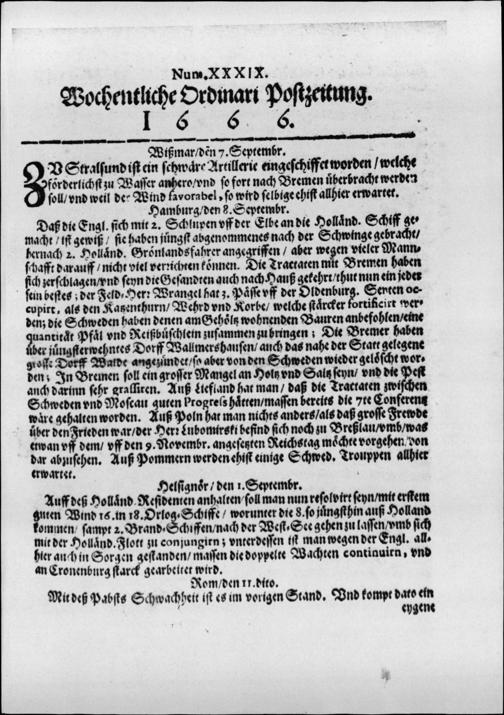 Num. XXXIX.
Wochentliche Ordinari Postzeitung.
1 6 6 6.
Wißmar/den 7. Septembr.
ZU Stralsund ist ein schwäre Artillerie eingeschiffet worden / welche
förderlichst zu Wasser anhero/vnd so fort nach Bremen überbracht werden
soll/vnd weil der Wind favorabel, so wird selbige ehist allhier erwartet.
Hamburg/den 8. Septembr.
Daß die Engl. sich mit 2. Schlupen vff der Elbe an die Holländ. Schiff ge-
macht / ist gewiß / sie haben jüngst abgenommenes nach der Schwinge gebracht/
hernach 2. Holländ. Grönlandsfahrer angegriffen / aber wegen vieler Mann-
schafft darauff / nicht viel verrichten können. Die Tractaten mit Bremen haben
sich zerschlagen/vnd seyn die Gesandten auch nach Hauß gekehrt/thut nun ein jeder
sein bestes; der Feld-Herr Wrangel hat 3. Pässe vff der Oldenburg. Seyten oc-
cupirt, als den Katzenthurn/ Wehrd vnd Korbe/ welche stärcker fortificirt wer-
den; die Schweden haben denen am Gehöltz wohnenden Bauren anbefohlen/eine
quantität Pfäl vnd Reißbüschlein zusammen zu bringen; Die Bremer haben
über jüngsterwehntes Dorff Wallmershausen/auch das nahe der Statt gelegene
grosse Dorff Walde angezündet/so aber von den Schweden wieder gelöscht wor-
den; In Bremen soll ein grosser Mangel an Holtz vnd Saltz seyn/ vnd die Pest
auch darinn sehr grassiren. Auß Liefland hat man / daß die Tractaten zwischen
Schweden vnd Moscau guten Progress hätten/massen bereits die 7te Conferentz
wäre gehalten worden. Auß Poln hat man nichts anders/als daß grosse Frewde
über den Frieden war/der Herr Lubomirski befind sich noch zu Breßlau/vmb/was
etwan vff dem/ vff den 9. Novembr. angesetzten Reichstag möchte vorgehen/von
dar abzusehen. Auß Pommern werden ehist einige Schwed. Trouppen allhier
erwartet.
Helsignör / den 1. Septembr.
Auff deß Holländ. Residenten anhalten/soll man nun resolvirt seyn/mit erstem
guten Wind 16. in 18. Orlog-Schiffe/ worunter die 8. so jüngsthin auß Holland
kommen/ sampt 2. Brand-Schiffen/nach der West-See gehen zu lassen/vmb sich
mit der Holländ. Flott zu conjungirn; vnterdessen ist man wegen der Engl. all-
hier auch in Sorgen gestanden/massen die doppelte Wachten continuirn, vnd
an Cronenburg starck gearbeitet wird.
Rom/den 11. dito.
Mit deß Pabsts Schwachheit ist es im vorigen Stand. Vnd kompt dato ein
eygene